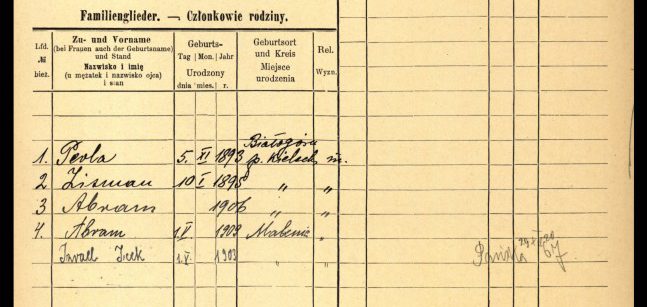 Familienglieder. — Członkowie rodziny.
Lfd. № bież. Zu- und Vorname (bei Frauen auch der Geburtsname) und Stand Nazwisko i imię (u mężatek i nazwisko ojca) i stan Geburts- Tag Mon. Jahr Urodzony dnia mies. r. Geburtsort und Kreis Miejsce urodzenia Rel. Wyzn.
Białogóra
1. Perla 5. XI 1893 p. Kielsch m.
2 Lisman 10 I 1895 „ „
3 Abram 1906 „ „
4. Abram 1. V. 1903 „
Izrael Icek 1. V. 1903 „ „
67